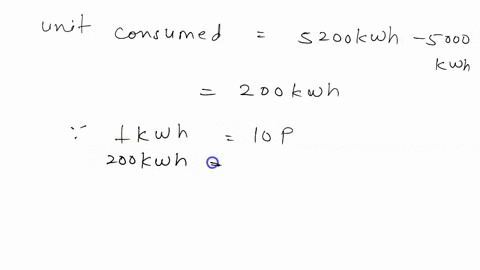 unit consumed = 5200kwh - 5000 kwh
= 200kwh
∵ 1kwh = 10 P
200kwh =